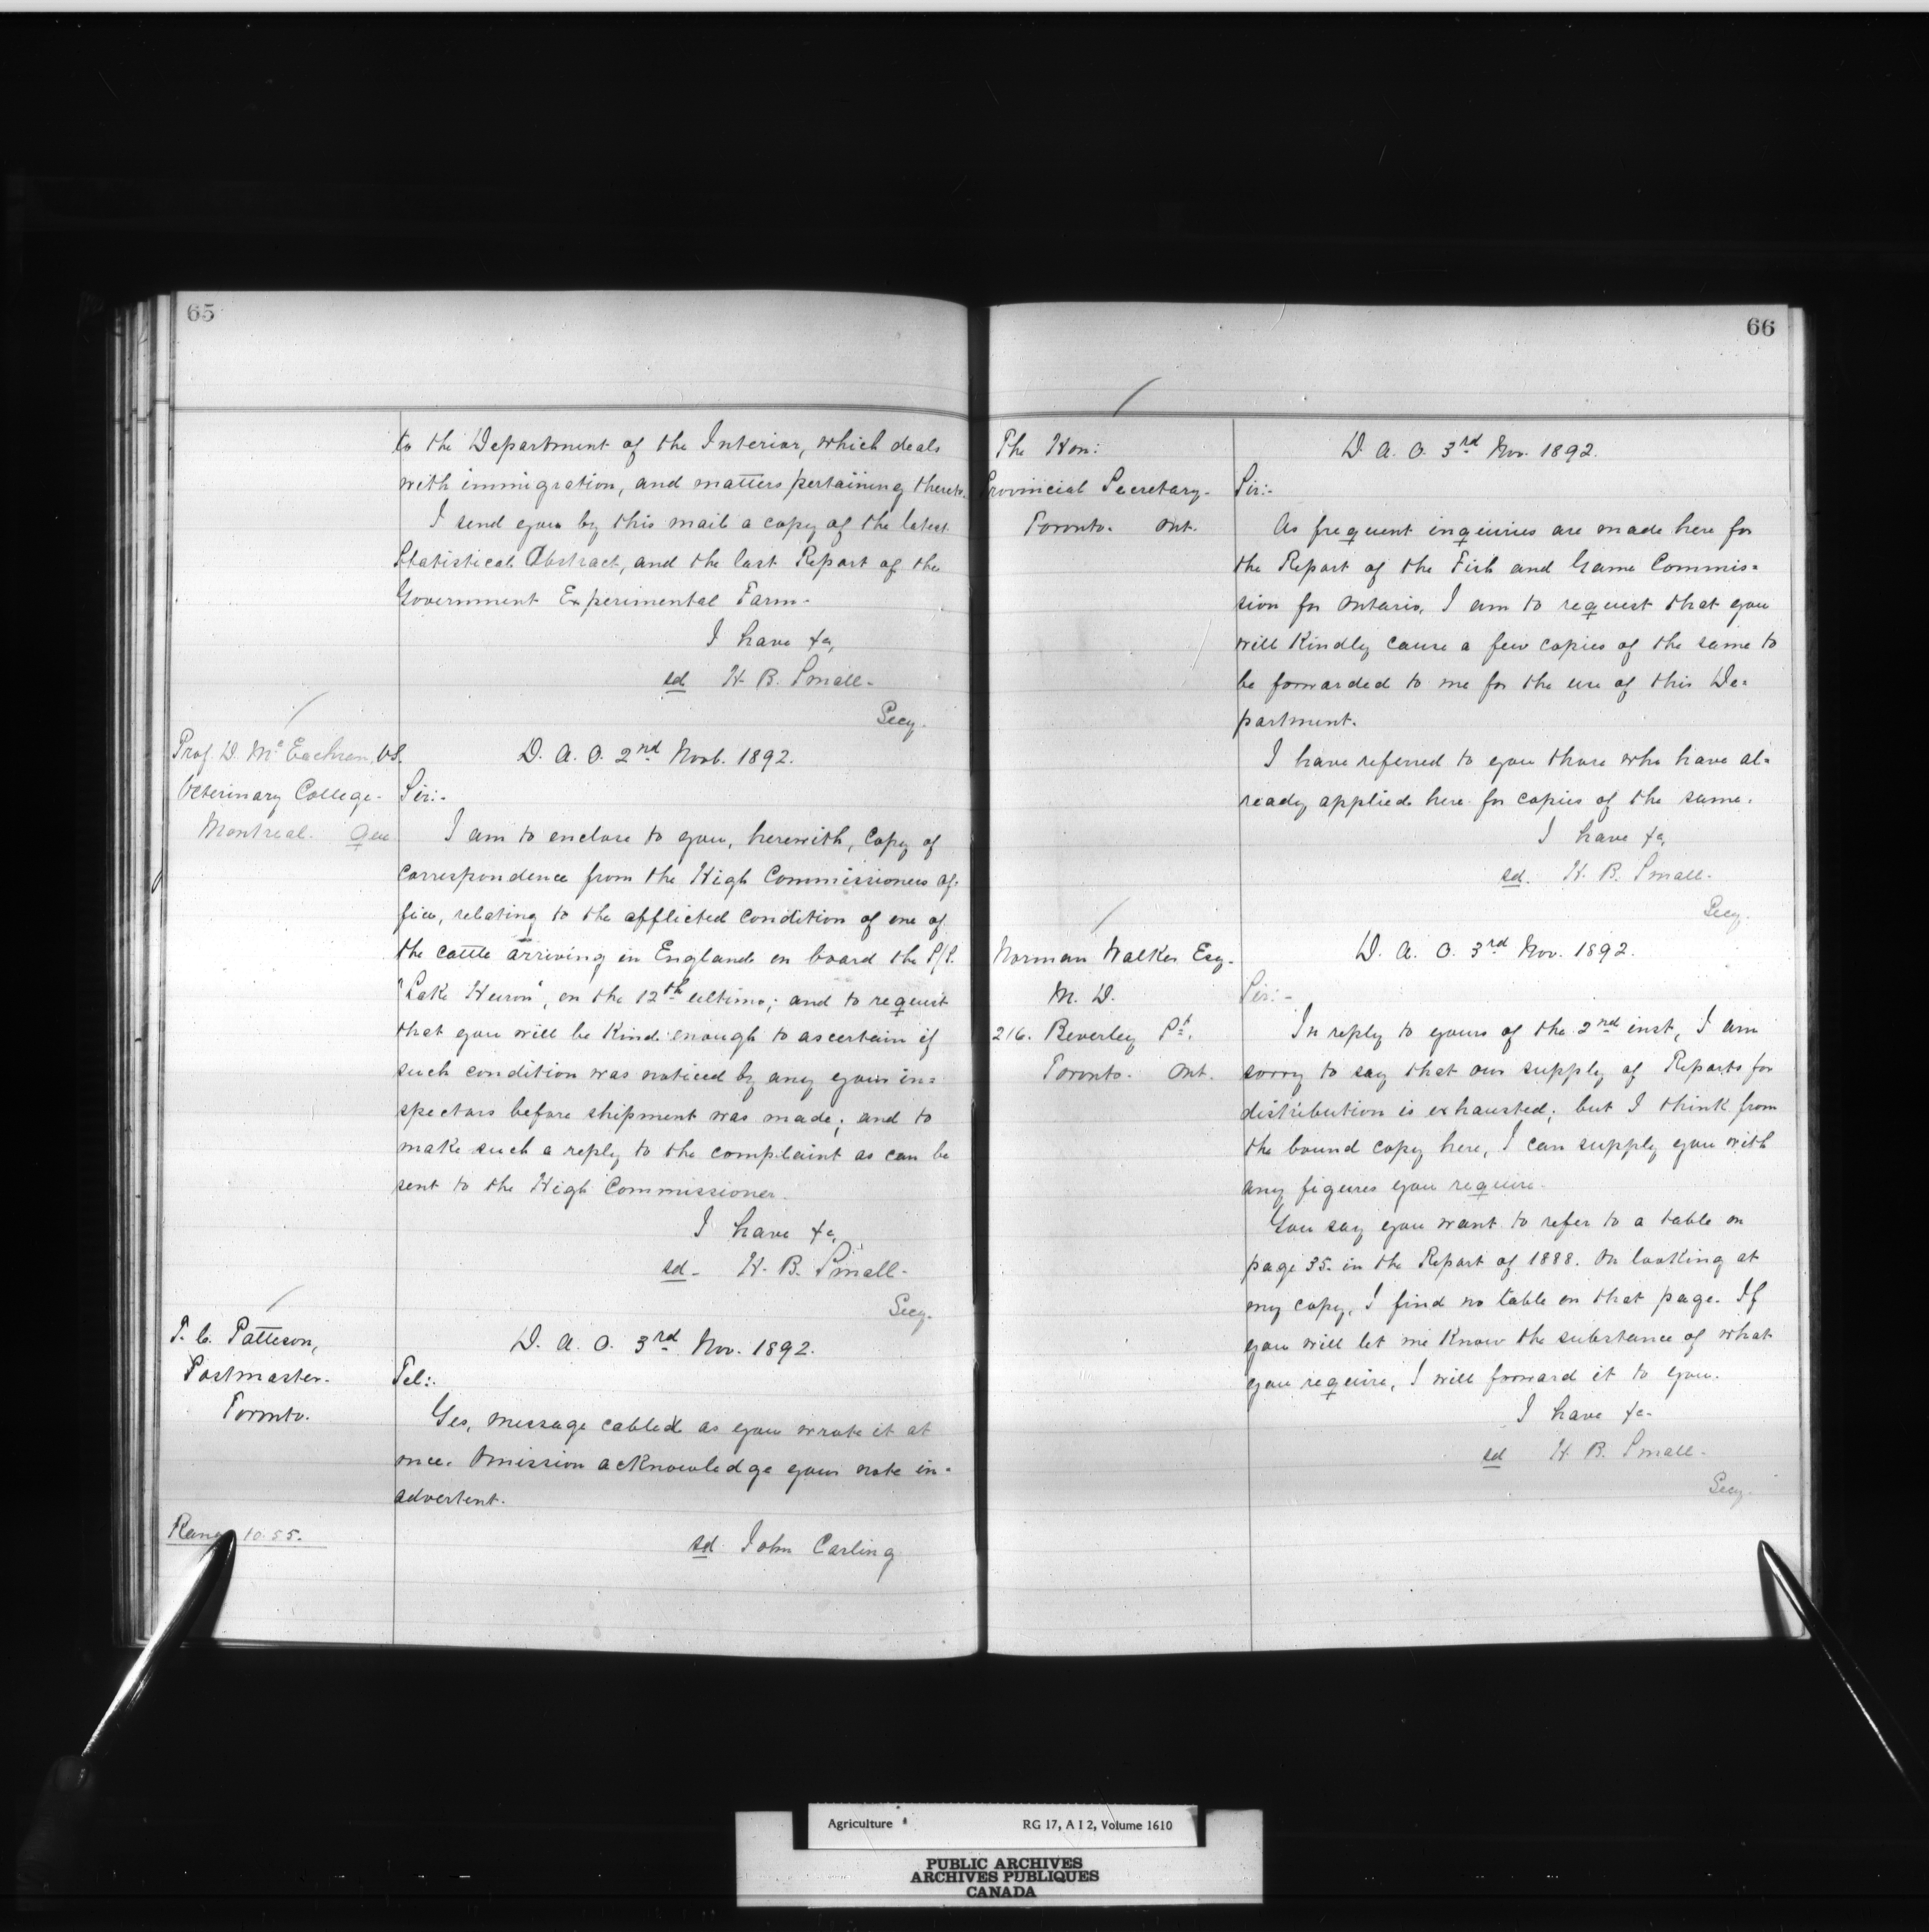 65
to the Department of the Interior, which deals
with immigration, and matters pertaining thereto.
I send you by this mail a copy of the latest
Statistical Abstract, and the last Report of the
Government Experimental Farm.
I have &c,
sd H. B. Small.
Secy.
Prof. D. McEachran, V.S.
Veterinary College.
Montreal. Que.
D. A. O. 2nd Novb. 1892.
Sir:-
I am to enclose to you, herewith, copy of
correspondence from the High Commissioners of-
fice, relating to the afflicted condition of one of
the cattle arriving in England on board the S/S.
"Lake Huron", on the 12th ultimo; and to request
that you will be kind enough to ascertain if
such condition was noticed by any your in=
spectors before shipment was made; and to
make such a reply to the complaint as can be
sent to the High Commissioner.
I have &c,
sd- H. B. Small-
Secy.
T. C. Patteson,
Postmaster.
Toronto.
D. A. O. 3rd Nov. 1892.
Tel:.
Yes, message cabled as you wrote it at
once. Omission acknowledge your note in-
advertent.
10.55.
sd. John Carling
66
The Hon:
Provincial Secretary.
Toronto. Ont.
D. A. O. 3rd Nov. 1892.
Sir:-
As frequent inquiries are made here for
the Report of the Fish and Game Commis=
sion for Ontario, I am to request that you
will kindly cause a few copies of the same to
be forwarded to me for the use of this De=
partment.
I have referred to you those who have al=
ready applied here for copies of the same.
I have &c,
sd. H. B. Small.
Secy.
Norman Walker Esq.
M. D.
216. Beverley St.
Toronto. Ont.
D. A. O. 3rd Nov. 1892.
Sir:-
In reply to yours of the 2nd inst, I am
sorry to say that our supply of Reports for
distribution is exhausted; but I think from
the bound copy here, I can supply you with
any figures you require.
You say you want to refer to a table on
page 35. in the Report of 1888. On looking at
my copy, I find no table on that page. If
you will let me know the substance of what
you require, I will forward it to you.
I have &c-
sd H. B. Small-
Secy.
Agriculture RG 17, A I 2, Volume 1610
PUBLIC ARCHIVES
ARCHIVES PUBLIQUES
CANADA